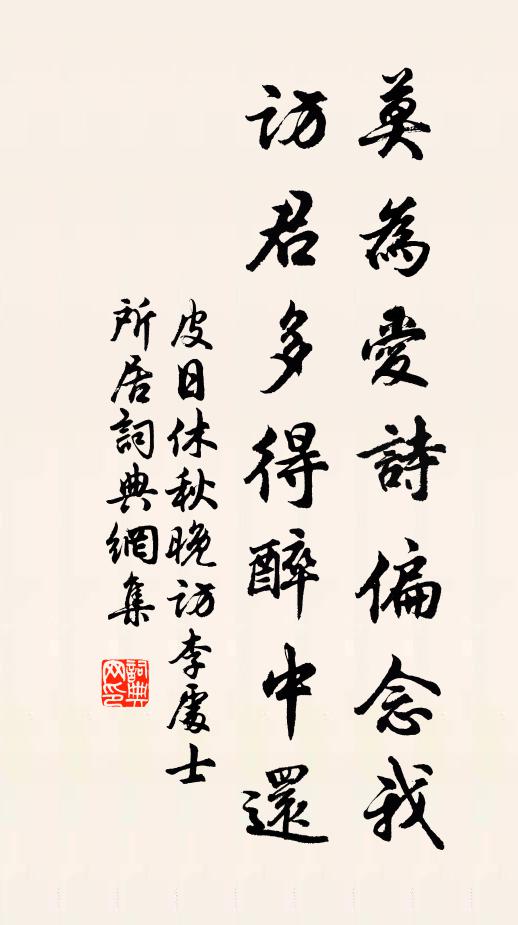 莫為愛詩偏念我
訪君多得醉中還
皮日休秋晚訪李處士
所居詞典網集
詞典网印